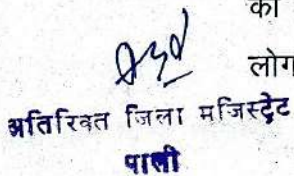 की
लोग
अतिरिक्त जिला मजिस्ट्रेट
पाली